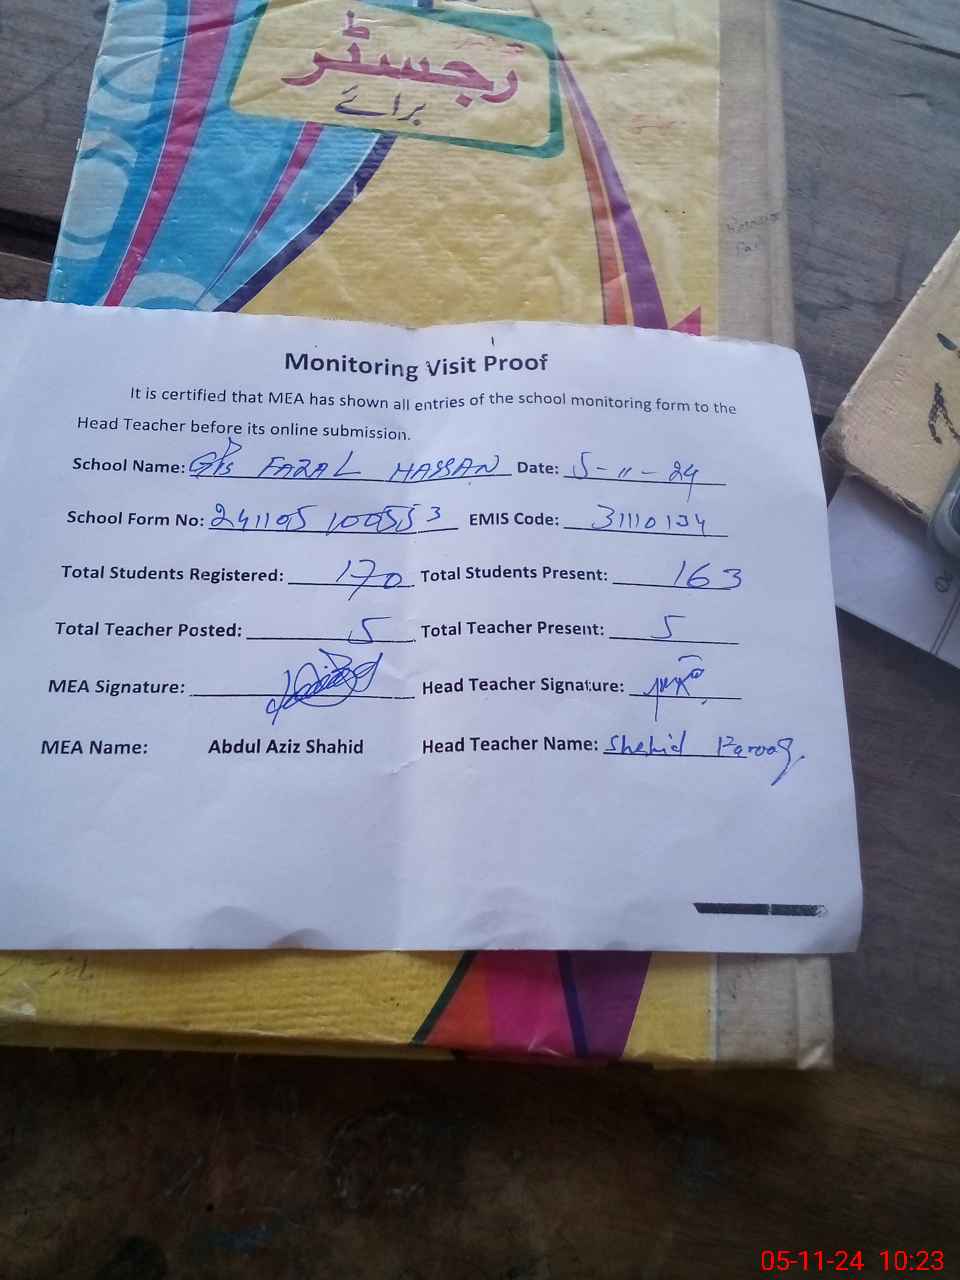 رجسٹر
برائے
Monitoring Visit Proof
It is certified that MEA has shown all entries of the school monitoring form to the
Head Teacher before its online submission.
School Name: GPS FAZAL HASSAN Date: 5-11-24
School Form No: 241105100553 EMIS Code: 31110134
Total Students Registered: 170 Total Students Present: 163
Total Teacher Posted: 5 Total Teacher Present: 5
MEA Signature: Head Teacher Signature:
MEA Name: Abdul Aziz Shahid Head Teacher Name: Shahid Farooq
05-11-24 10:23